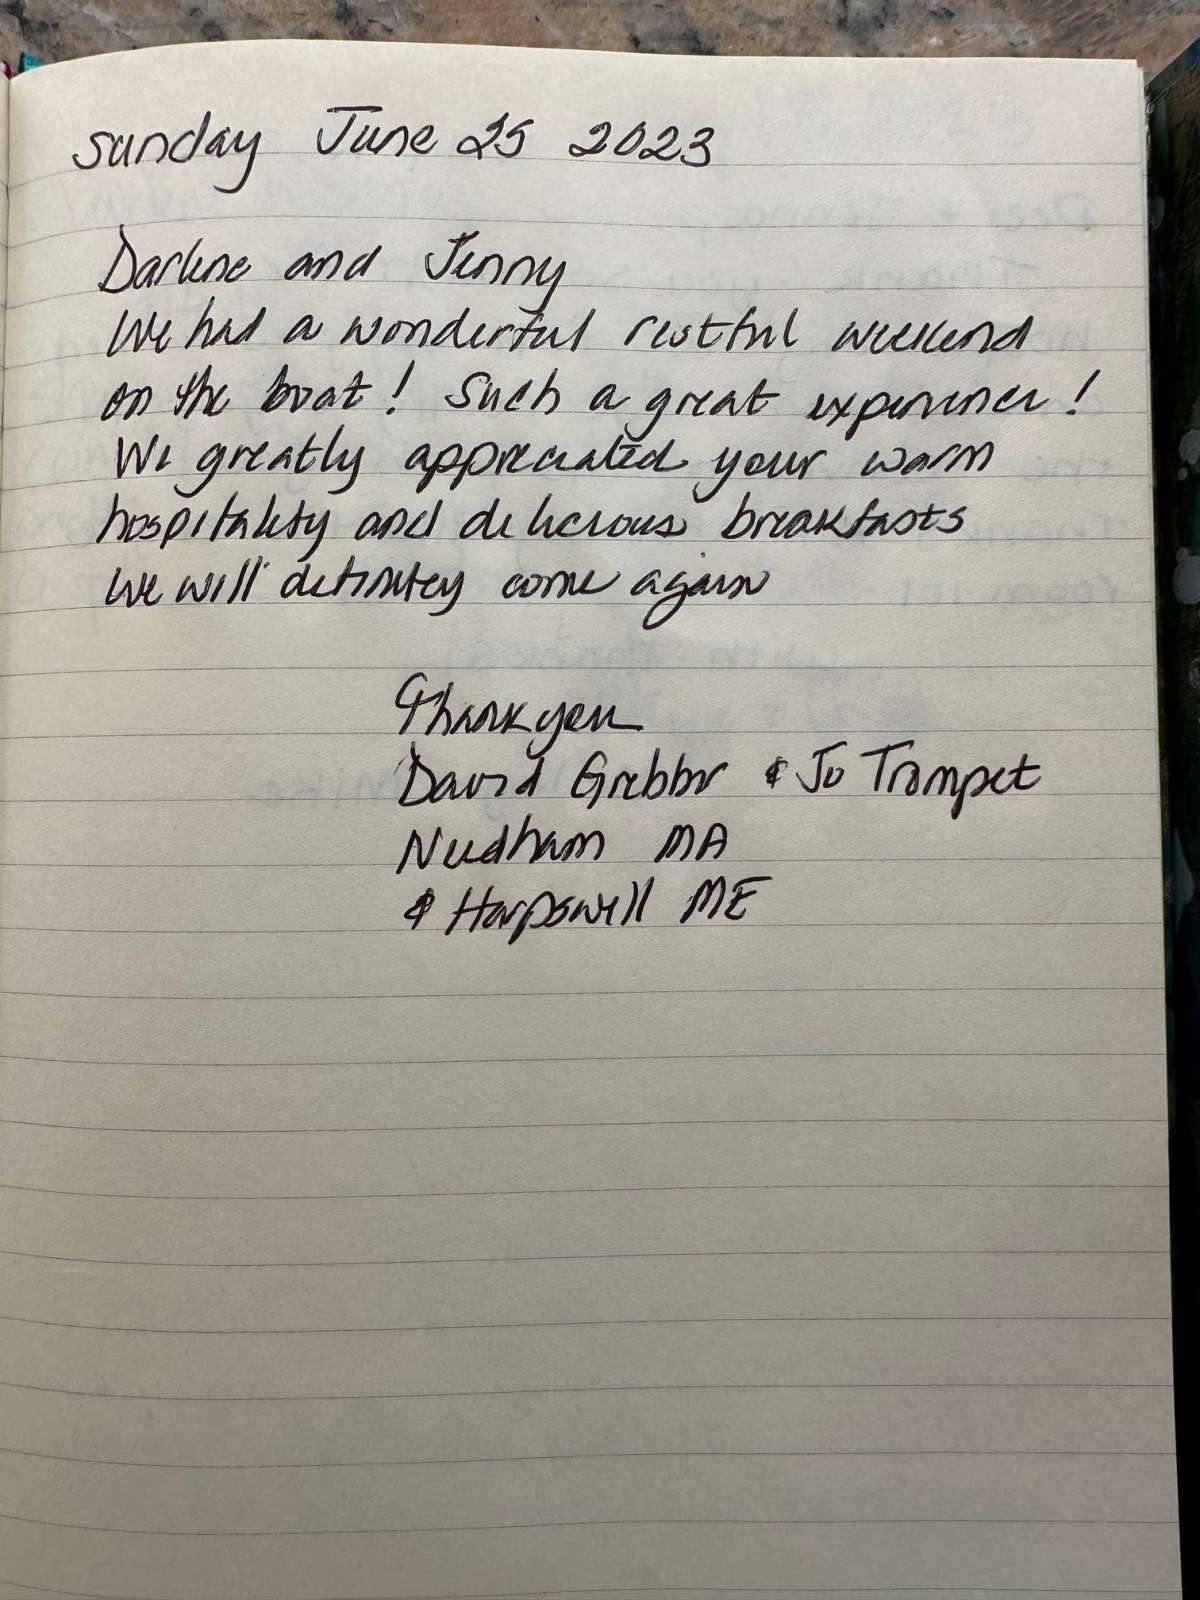 Sunday June 25 2023
Darlene and Jenny
We had a wonderful restful weekend
on the boat! Such a great experience!
We greatly appreciated your warm
hospitality and delicious breakfasts
We will definitey come again
Thank you
David Grebber & Jo Trompet
Needham MA
& Harpswell ME